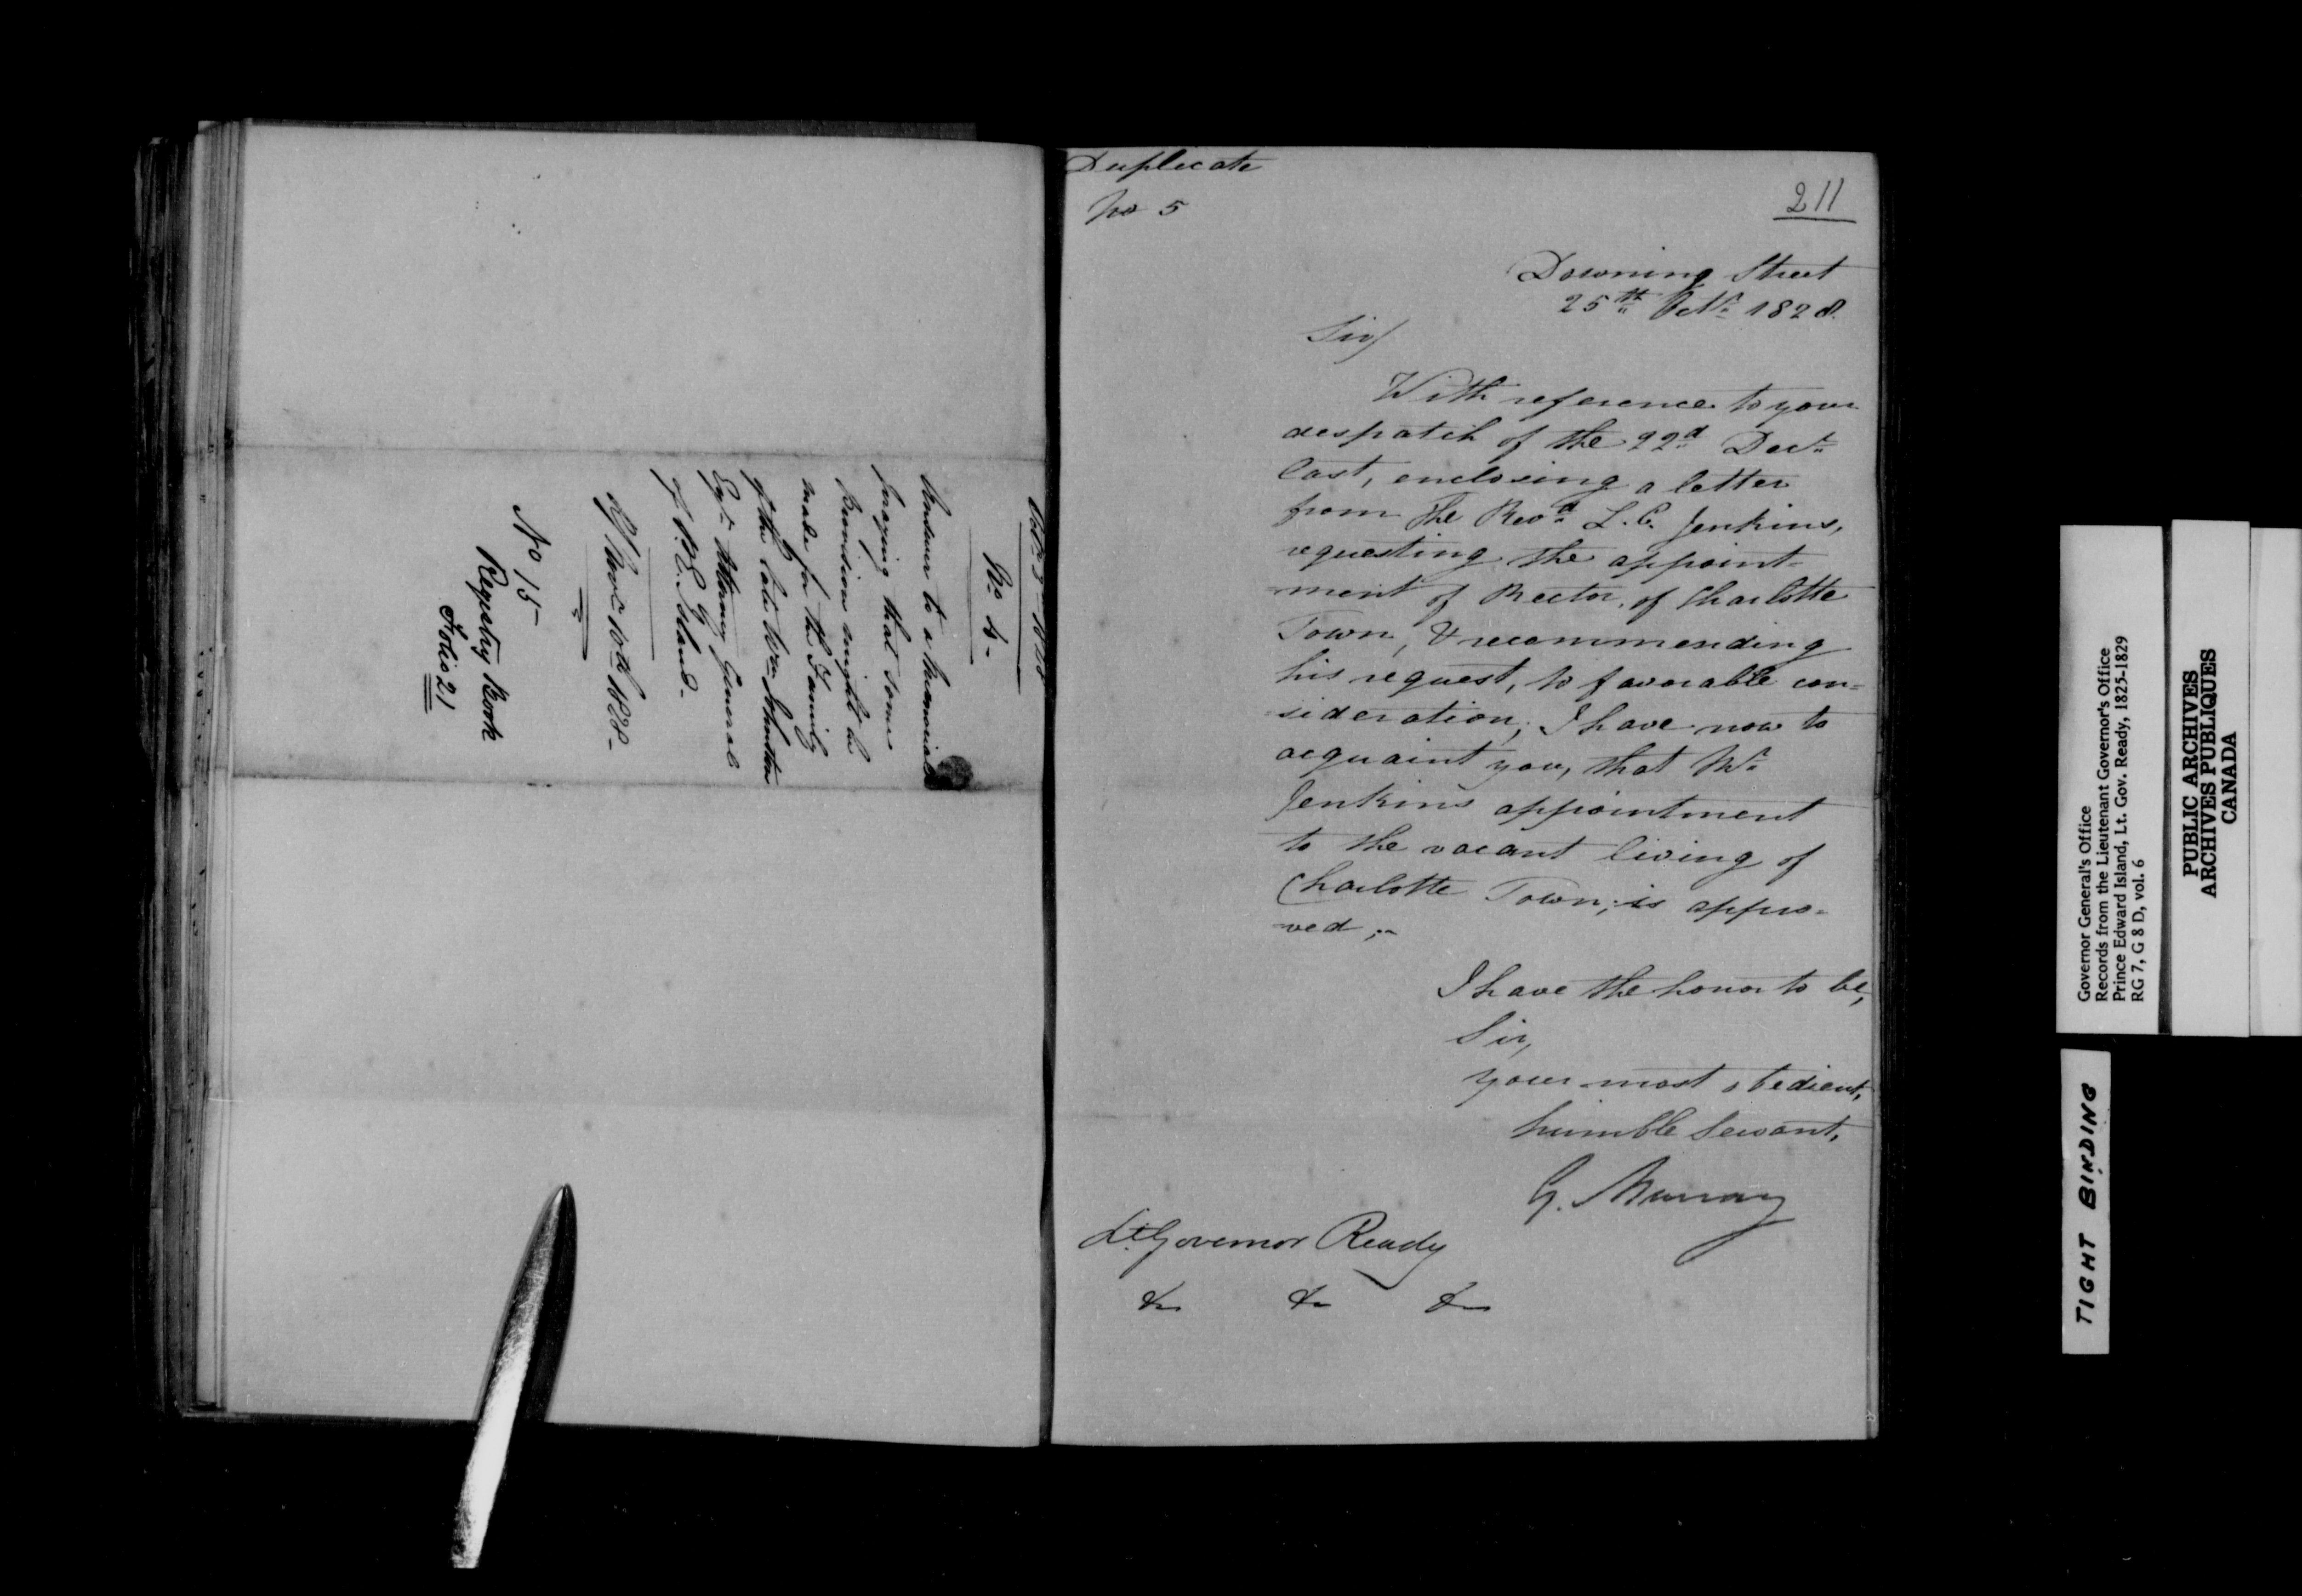 Octr 3d 1828
No 4-
Answer to a Memorial
praying that some
Provision might be
made for the Family
of the late Wm Johnston
Esqr Attorney General
of P. E. Island-
Novr 10th 1828-
No 15-
Registry Book
Folio 21
Duplicate
No 5
211
Downing Street
25th Octr 1828.
Sir/
With reference to your
despatch of the 22d Decr
last, enclosing a letter
from the Revd L. C. Jenkins,
requesting the appoint-
-ment of Rector, of Charlotte
Town, & recommending
his request, to favorable con=
-sideration; I have now to
acquaint you, that Mr
Jenkins appointment
to the vacant living of
Charlotte Town; is appro-
-ved ;-
I have the honor to be,
Sir,
your most obedient,
humble Servant,
G. Murray
Lt Governor Ready
&c &c &c
Governor General's Office
Records from the Lieutenant Governor's Office
Prince Edward Island, Lt. Gov. Ready, 1825-1829
RG 7, G 8 D, vol. 6
PUBLIC ARCHIVES
ARCHIVES PUBLIQUES
CANADA
TIGHT BINDING